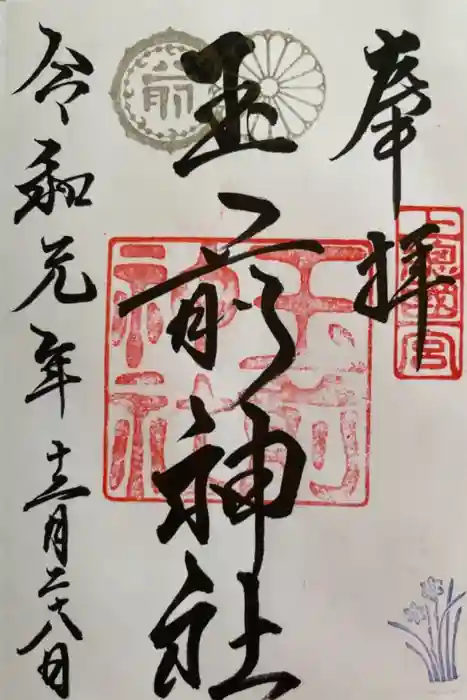 奉拝
上總國一宮
玉前神社
玉前神社
前
令和元年十二月二十八日